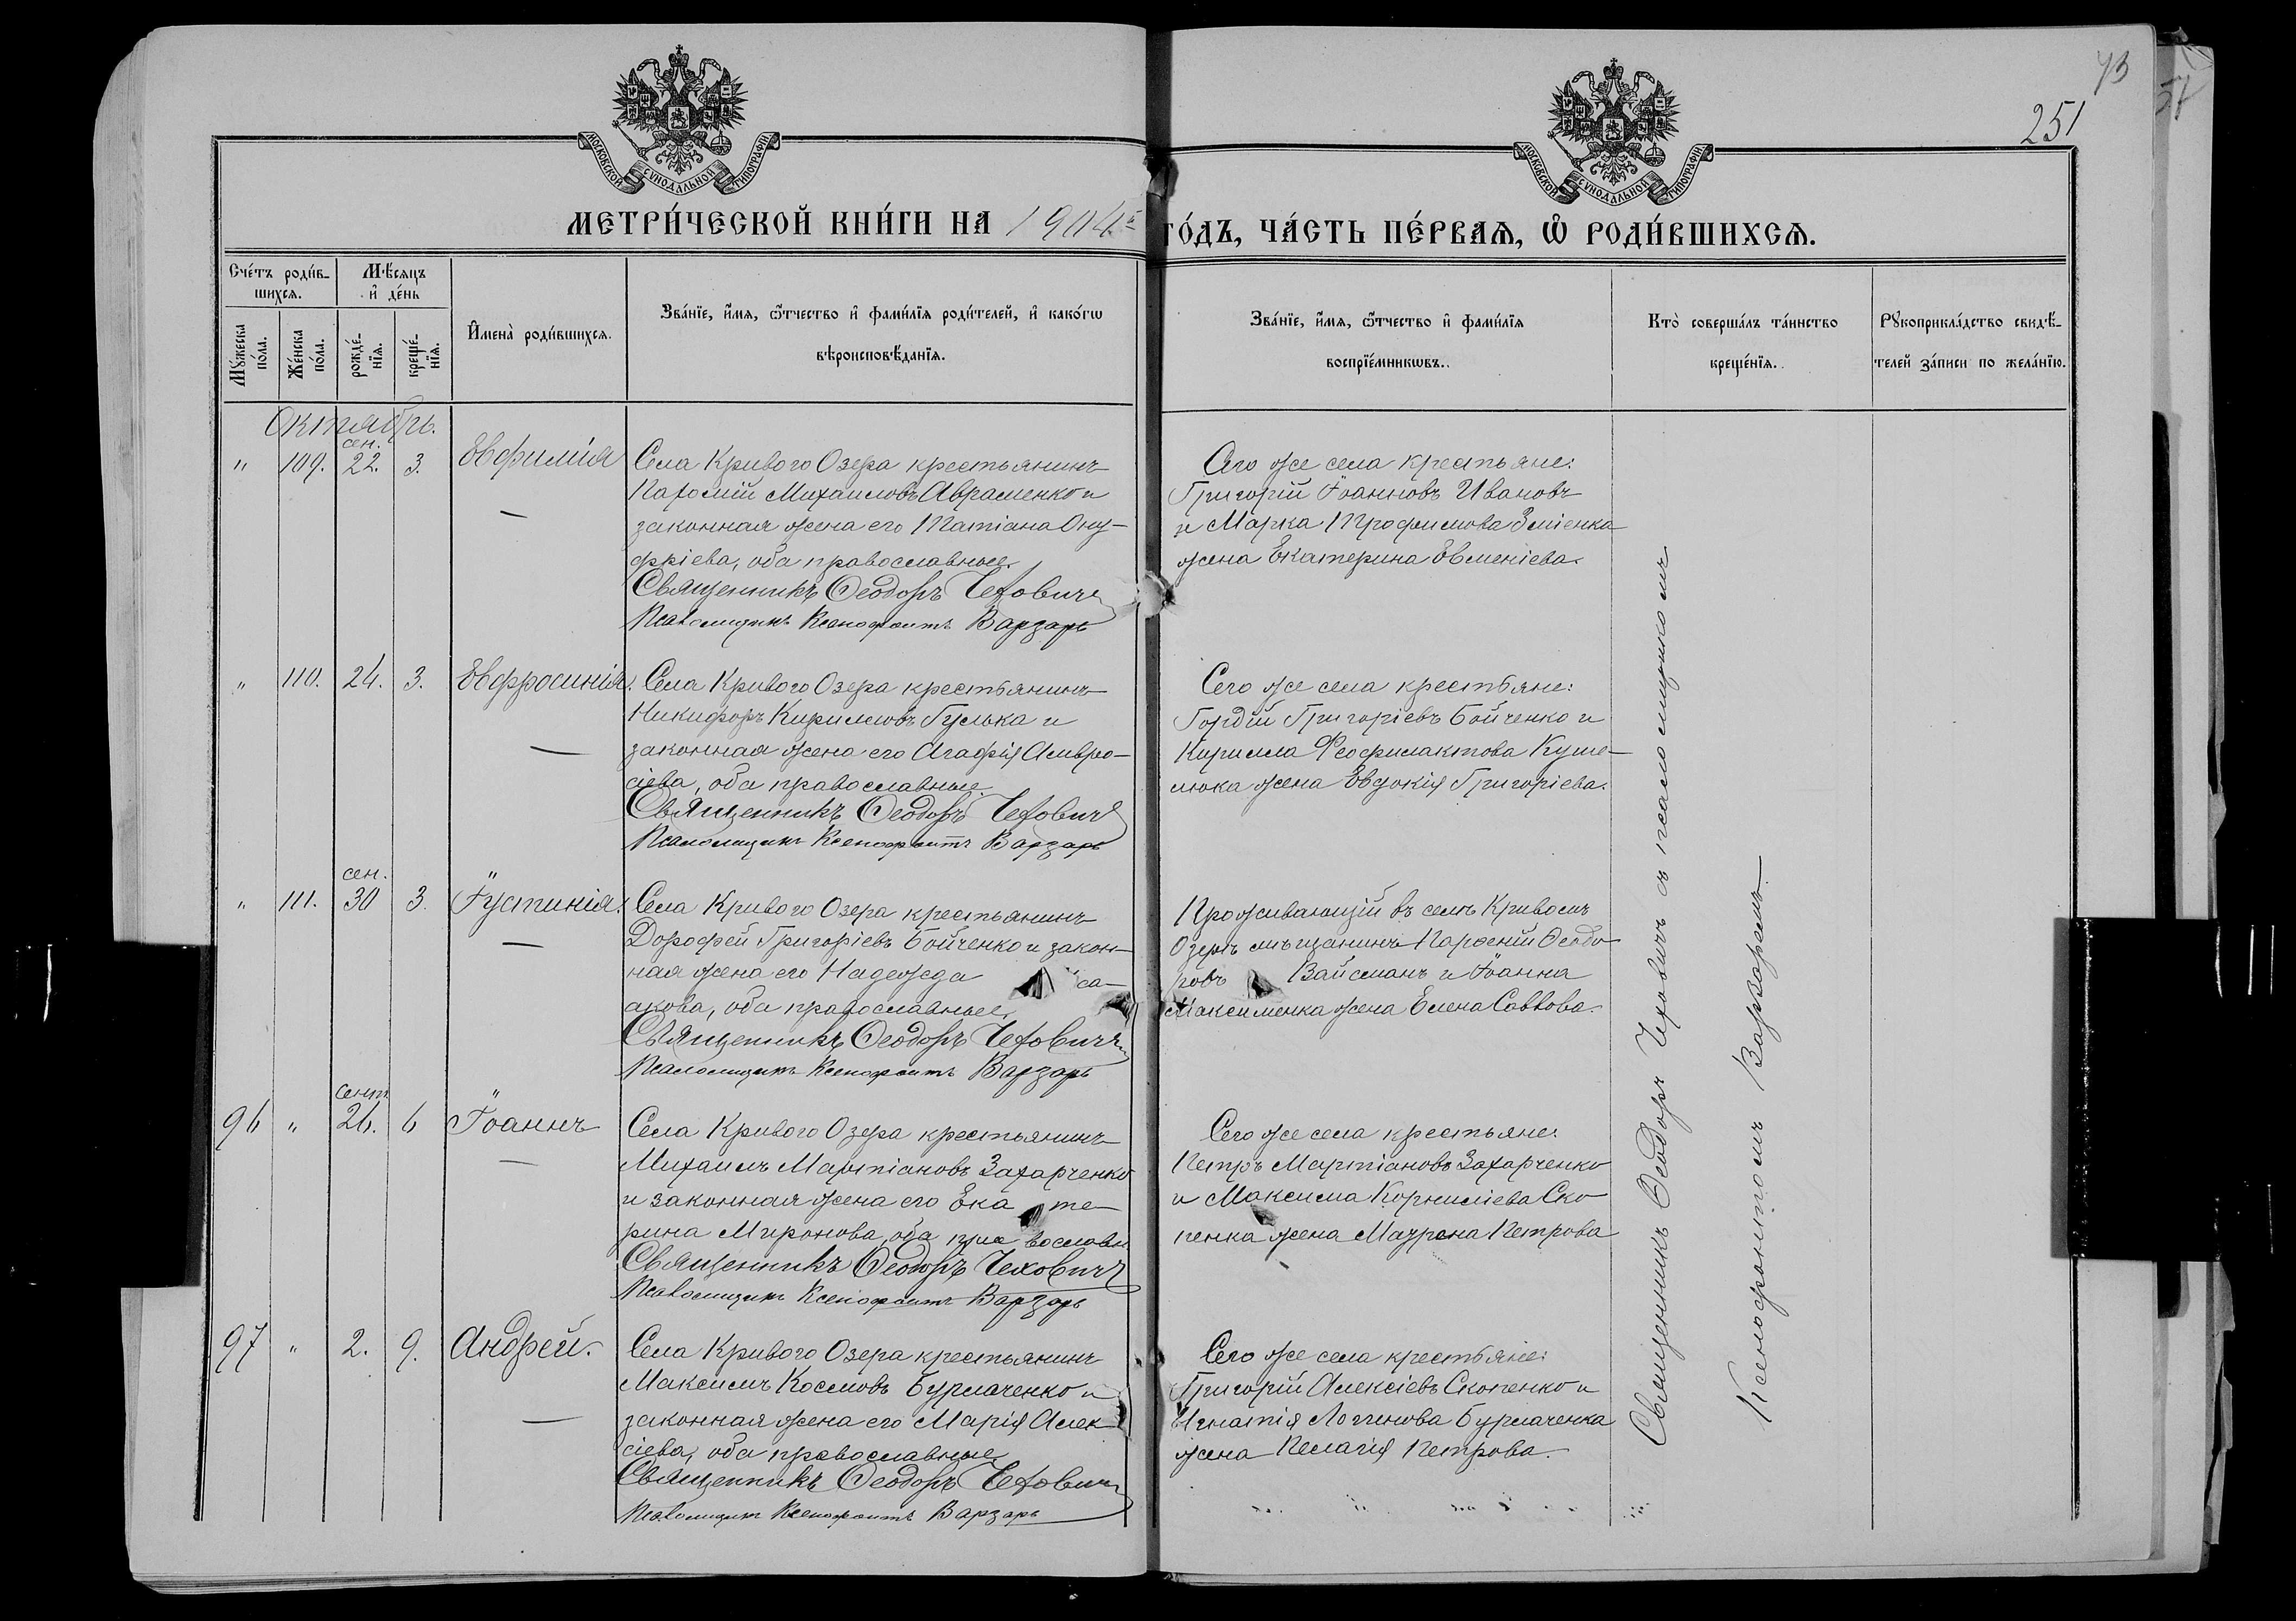 73
251
МОСКОВСКОЙ СѴНОДАЛЬНОЙ ТИПОГРАФІИ
МОСКОВСКОЙ СѴНОДАЛЬНОЙ ТИПОГРАФІИ
МЕТРИ́ЧЕСКОЙ КНИ́ГИ НА 1904й ГО́ДЪ, ЧА́СТЬ ПЕ́РВАѦ, Ѽ РОДИ́ВШИХСѦ.
Сче́тъ роди́в-
шихсѧ.
Мꙋ́жеска по́ла.
Же́нска по́ла.
Мѣ́сѧцъ
и҆ де́нь
рожде́-
нїѧ.
креще́-
нїѧ.
И҆мена̀ роди́вшихсѧ.
Зва́нїе, и҆́мѧ, ѻ҆́тчество и҆ фами́лїѧ роди́телей, и҆ како́гѡ
вѣроисповѣ́данїѧ.
Зва́нїе, и҆́мѧ, ѻ҆́тчество и҆ фами́лїѧ
воспрїе́мникѡвъ.
Кто̀ соверша́лъ та́инство
креще́нїѧ.
Рꙋкоприкла́дство свидѣ́-
телей за́писи по жела́нїю.
Октябрь.
сен.
" 109. 22. 3. Евфимія
Села Кривого Озера крестьянинъ
Пахомій Михаиловъ Авраменко и
законная жена его Татіана Ону-
фріева, оба православные.
Священникъ Ѳеодоръ Чеховичъ
Псаломщикъ Ксенофонтъ Варзарь
Сего же села крестьяне:
Григорій Іоанновъ Ивановъ
и Марка Трофимова Зміенка
жена Екатерина Евменіева.
" 110. 24. 3. Евфросинія.
Села Кривого Озера крестьянинъ
Никифоръ Кирилловъ Гулька и
законная жена его Агафія Амвро-
сіева, оба православные.
Священникъ Ѳеодоръ Чеховичъ
Псаломщикъ Ксенофонтъ Варзарь
Сего же села крестьяне:
Гордій Григоріевъ Бойченко и
Кирилла Феофилактова Куше-
люка жена Евдокія Григоріева.
сен.
" 111. 30 3. Іустинія.
Села Кривого Озера крестьянинъ
Дорофей Григоріевъ Бойченко и закон-
ная жена его Надежда са-
акова, оба православные.
Священникъ Ѳеодоръ Чеховичъ
Псаломщикъ Ксенофонтъ Варзарь
Проживающій въ селѣ Кривомъ
Озерѣ мѣщанинъ Парѳеній Ѳеодо-
ровъ Вайсманъ и Іоанна
Максименка жена Елена Саввова.
сент.
96 " 26. 6 Іоаннъ
Села Кривого Озера крестьянинъ
Михаилъ Мартіановъ Захарченко
и законная жена его Ека те-
рина Миронова, оба пра вославн.
Священникъ Ѳеодоръ Чеховичъ
Псаломщикъ Ксенофонтъ Варзарь
Сего же села крестьяне:
Петръ Мартіановъ Захарченко
и Максима Корниліева Ско-
пенка жена Маѵрона Петрова
97 " 2. 9. Андрей.
Села Кривого Озера крестьянинъ
Максимъ Космовъ Бурлаченко и
законная жена его Марія Алек-
сіева, оба православные
Священникъ Ѳеодоръ Чеховичъ
Псаломщикъ Ксенофонтъ Варзарь
Сего же села крестьяне:
Григорій Алексіевъ Скопенко и
Игнатія Логгинова Бурлаченка
жена Пелагія Петрова.
Священникъ Ѳеодоръ Чеховичъ съ псаломщикомъ
Ксенофонтомъ Варзаремъ.